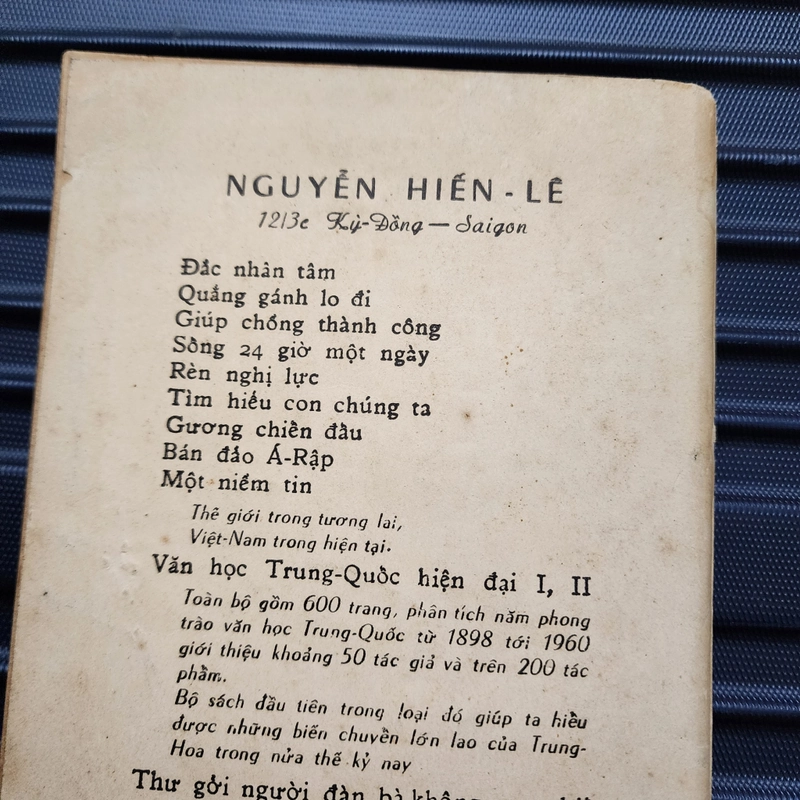 NGUYỄN HIẾN-LÊ
12/3c Kỳ-Đồng — Saigon
Đắc nhân tâm
Quẳng gánh lo đi
Giúp chồng thành công
Sống 24 giờ một ngày
Rèn nghị lực
Tìm hiểu con chúng ta
Gương chiến đấu
Bán đảo Á-Rập
Một niềm tin
Thế giới trong tương lai,
Việt-Nam trong hiện tại.
Văn học Trung-Quốc hiện đại I, II
Toàn bộ gồm 600 trang, phân tích năm phong
trào văn học Trung-Quốc từ 1898 tới 1960
giới thiệu khoảng 50 tác giả và trên 200 tác
phẩm.
Bộ sách đầu tiên trong loại đó giúp ta hiểu
được những biến chuyển lớn lao của Trung-
Hoa trong nửa thế kỷ nay
Thư gởi người đàn bà không